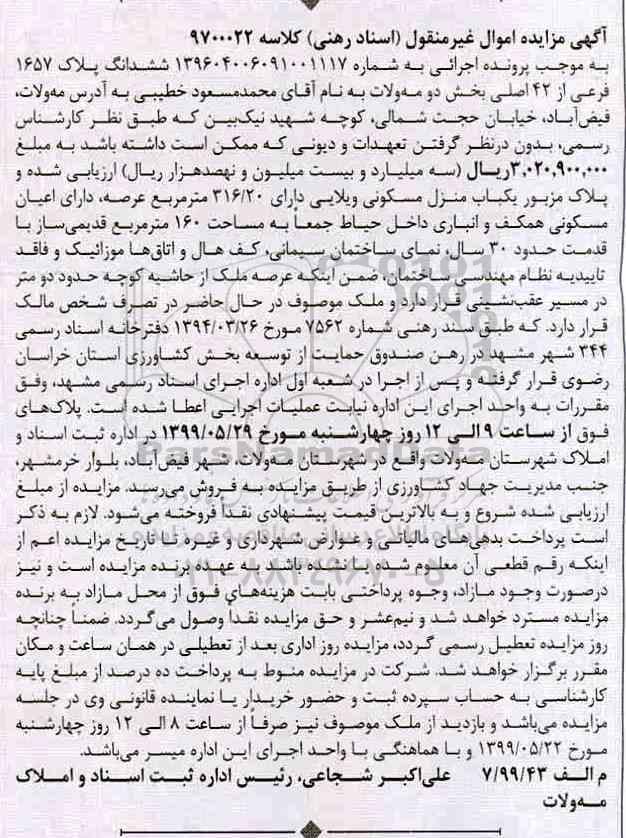 آگهی مزایده اموال غیرمنقول (اسناد رهنی) کلاسه ۹۷۰۰۰۲۲
به موجب پرونده اجرائی به شماره ۱۳۹۶۰۴۰۰۶۰۹۱۰۰۱۱۱۷ ششدانگ پلاک ۱۶۵۷
فرعی از ۴۲ اصلی بخش دو مه‌ولات به نام آقای محمدمسعود خطیبی به آدرس مه‌ولات،
فیض‌آباد، خیابان حجت شمالی، کوچه شهید نیک‌بین که طبق نظر کارشناس
رسمی، بدون درنظر گرفتن تعهدات و دیونی که ممکن است داشته باشد به مبلغ
۳,۰۲۰,۹۰۰,۰۰۰ریال (سه میلیارد و بیست میلیون و نهصدهزار ریال) ارزیابی شده و
پلاک مزبور یکباب منزل مسکونی ویلایی دارای ۳۱۶/۲۰ مترمربع عرصه، دارای اعیان
مسکونی همکف و انباری داخل حیاط جمعاً به مساحت ۱۶۰ مترمربع قدیمی‌ساز با
قدمت حدود ۳۰ سال، نمای ساختمان سیمانی، کف هال و اتاق‌ها موزائیک و فاقد
تاییدیه نظام مهندسی ساختمان، ضمن اینکه عرصه ملک از حاشیه کوچه حدود دو متر
در مسیر عقب‌نشینی قرار دارد و ملک موصوف در حال حاضر در تصرف شخص مالک
قرار دارد. که طبق سند رهنی شماره ۷۵۶۲ مورخ ۱۳۹۴/۰۳/۲۶ دفترخانه اسناد رسمی
۳۴۴ شهر مشهد در رهن صندوق حمایت از توسعه بخش کشاورزی استان خراسان
رضوی قرار گرفته و پس از اجرا در شعبه اول اداره اجرای اسناد رسمی مشهد، وفق
مقررات به واحد اجرای این اداره نیابت عملیات اجرایی اعطا شده است. پلاک‌های
فوق از ساعت ۹ الی ۱۲ روز چهارشنبه مورخ ۱۳۹۹/۰۵/۲۹ در اداره ثبت اسناد و
املاک شهرستان مه‌ولات واقع در شهرستان مه‌ولات، شهر فیض‌آباد، بلوار خرمشهر،
جنب مدیریت جهاد کشاورزی از طریق مزایده به فروش می‌رسد. مزایده از مبلغ
ارزیابی شده شروع و به بالاترین قیمت پیشنهادی نقداً فروخته می‌شود. لازم به ذکر
است پرداخت بدهی‌های مالیاتی و عوارض شهرداری و غیره تا تاریخ مزایده اعم از
اینکه رقم قطعی آن معلوم شده یا نشده باشد به عهده برنده مزایده است و نیز
درصورت وجود مازاد، وجوه پرداختی بابت هزینه‌های فوق از محل مازاد به برنده
مزایده مسترد خواهد شد و نیم‌عشر و حق مزایده نقداً وصول می‌گردد. ضمناً چنانچه
روز مزایده تعطیل رسمی گردد، مزایده روز اداری بعد از تعطیلی در همان ساعت و مکان
مقرر برگزار خواهد شد. شرکت در مزایده منوط به پرداخت ده درصد از مبلغ پایه
کارشناسی به حساب سپرده ثبت و حضور خریدار یا نماینده قانونی وی در جلسه
مزایده می‌باشد و بازدید از ملک موصوف نیز صرفاً از ساعت ۸ الی ۱۲ روز چهارشنبه
مورخ ۱۳۹۹/۰۵/۲۲ و با هماهنگی با واحد اجرای این اداره میسر می‌باشد.
م الف ۷/۹۹/۴۳ علی‌اکبر شجاعی، رئیس اداره ثبت اسناد و املاک
مه‌ولات
ParsNamadData